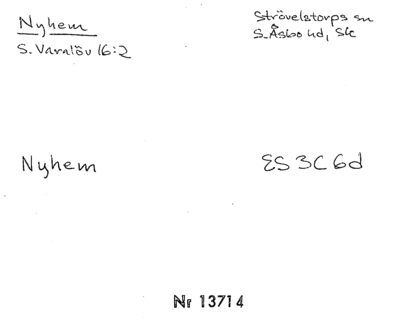 Nyhem
S. Varalöv 16:2
Strövelstorps sn
S. Åsbo hd, Sk
Nyhem
ES 3C 6d
Nr 13714